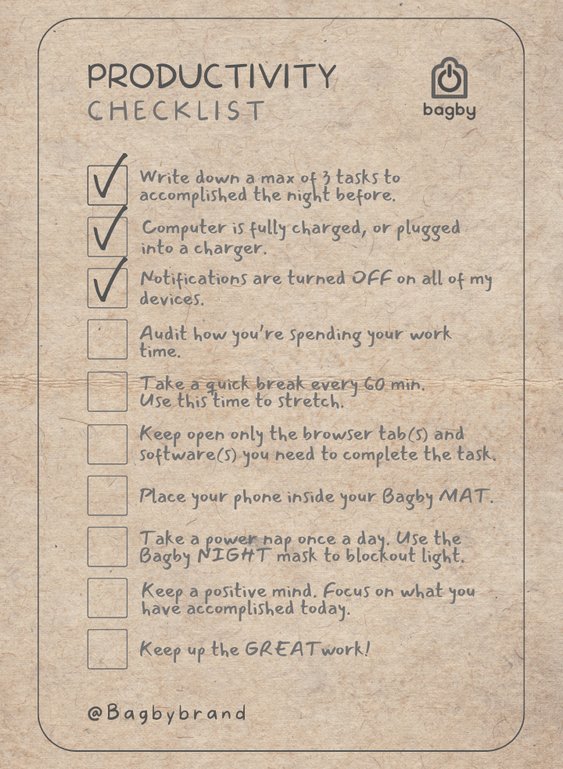 PRODUCTIVITY
CHECKLIST
bagby
Write down a max of 3 tasks to
accomplished the night before.
Computer is fully charged, or plugged
into a charger.
Notifications are turned OFF on all of my
devices.
Audit how you're spending your work
time.
Take a quick break every 60 min.
Use this time to stretch.
Keep open only the browser tab(s) and
software(s) you need to complete the task.
Place your phone inside your Bagby MAT.
Take a power nap once a day. Use the
Bagby NIGHT mask to blockout light.
Keep a positive mind. Focus on what you
have accomplished today.
Keep up the GREAT work!
@Bagbybrand